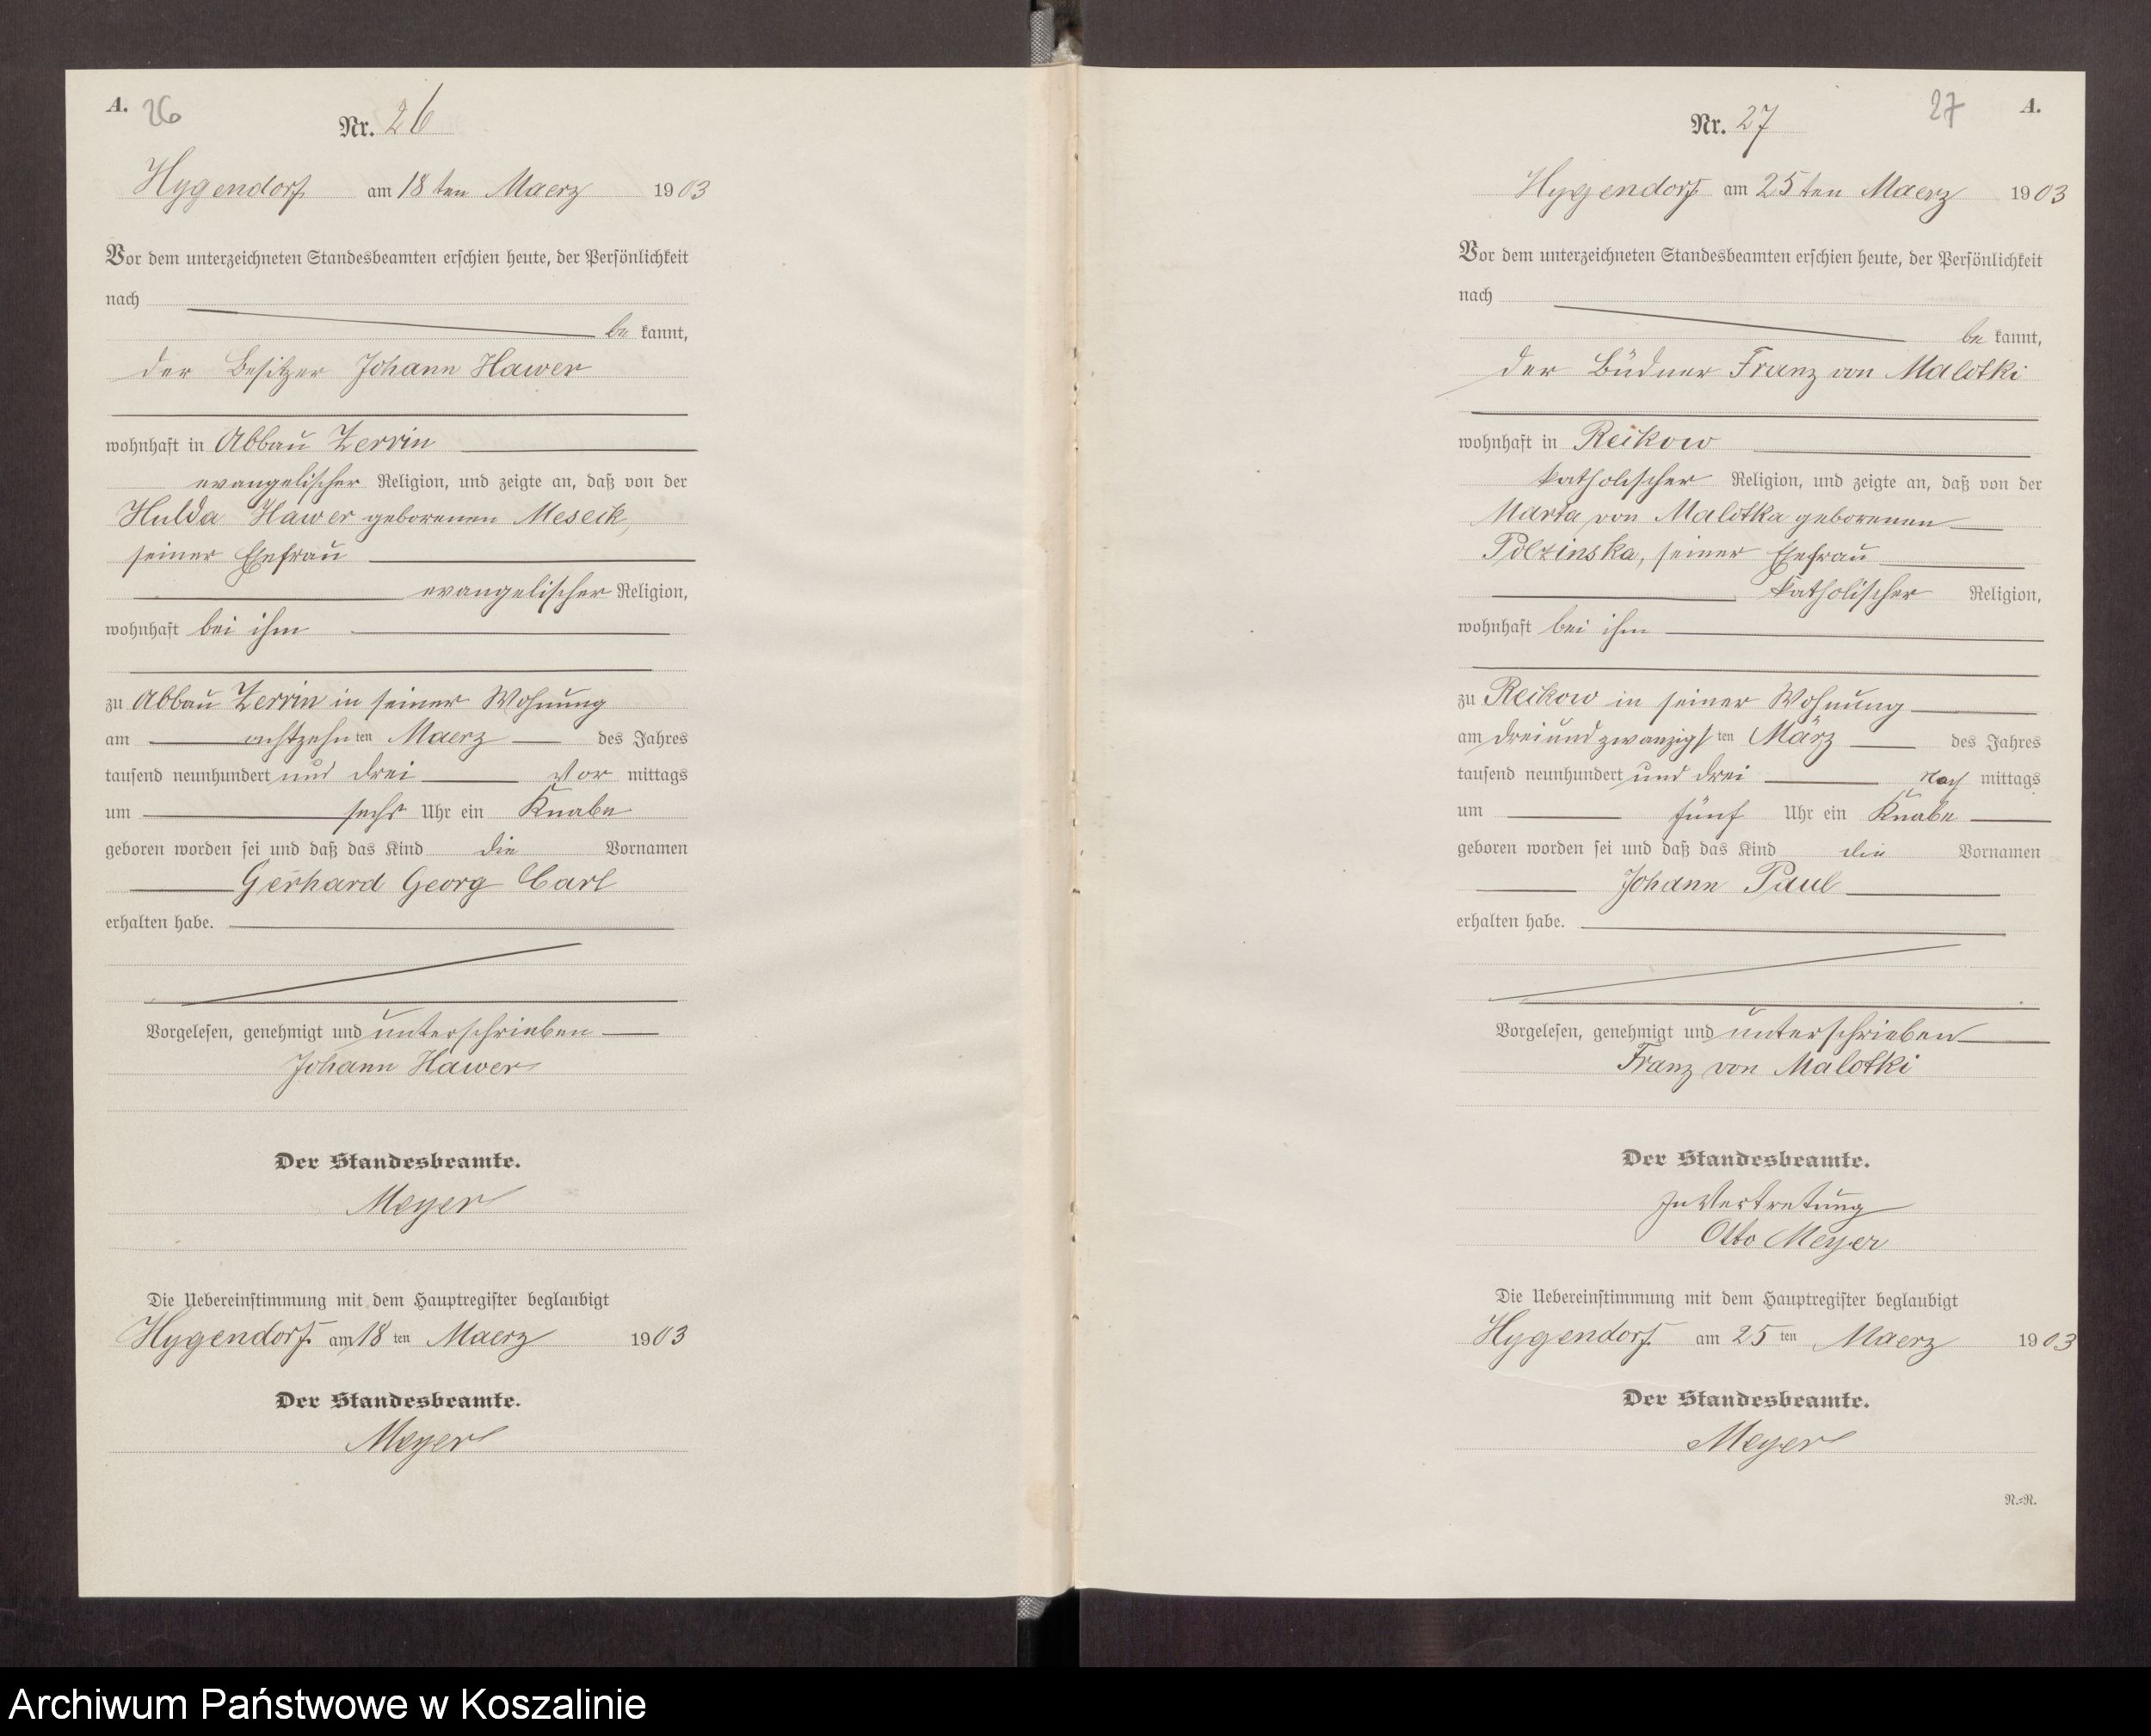 A. 26
Nr. 26
Hygendorf am 18ten Maerz 1903
Vor dem unterzeichneten Standesbeamten erschien heute, der Persönlichkeit
nach
be kannt,
der Besitzer Johann Hawer
wohnhaft in Abbau Zerrin
evangelischer Religion, und zeigte an, daß von der
Hulda Hawer geborenen Meseck,
seiner Ehefrau
evangelischer Religion,
wohnhaft bei ihm
zu Abbau Zerrin in seiner Wohnung
am achtzehn ten Maerz des Jahres
tausend neunhundert und drei Vor mittags
um sechs Uhr ein Knabe
geboren worden sei und daß das Kind die Vornamen
Gerhard Georg Carl
erhalten habe.
Vorgelesen, genehmigt und unterschrieben
Johann Hawer
Der Standesbeamte.
Meyer
Die Uebereinstimmung mit dem Hauptregister beglaubigt
Hygendorf am 18 ten Maerz 1903
Der Standesbeamte.
Meyer
27 A.
Nr. 27
Hygendorf am 25ten Maerz 1903
Vor dem unterzeichneten Standesbeamten erschien heute, der Persönlichkeit
nach
be kannt,
der Büdner Franz von Malotki
wohnhaft in Reikow
katholischer Religion, und zeigte an, daß von der
Marta von Malotka geborenen
Polzinska, seiner Ehefrau
katholischer Religion,
wohnhaft bei ihm
zu Reikow in seiner Wohnung
am dreiundzwanzigs ten März des Jahres
tausend neunhundert und drei Nach mittags
um fünf Uhr ein Knabe
geboren worden sei und daß das Kind die Vornamen
Johann Paul
erhalten habe.
Vorgelesen, genehmigt und unterschrieben
Franz von Malotki
Der Standesbeamte.
In Vertretung
Otto Meyer
Die Uebereinstimmung mit dem Hauptregister beglaubigt
Hygendorf am 25 ten Maerz 1903
Der Standesbeamte.
Meyer
N.=N.
Archiwum Państwowe w Koszalinie